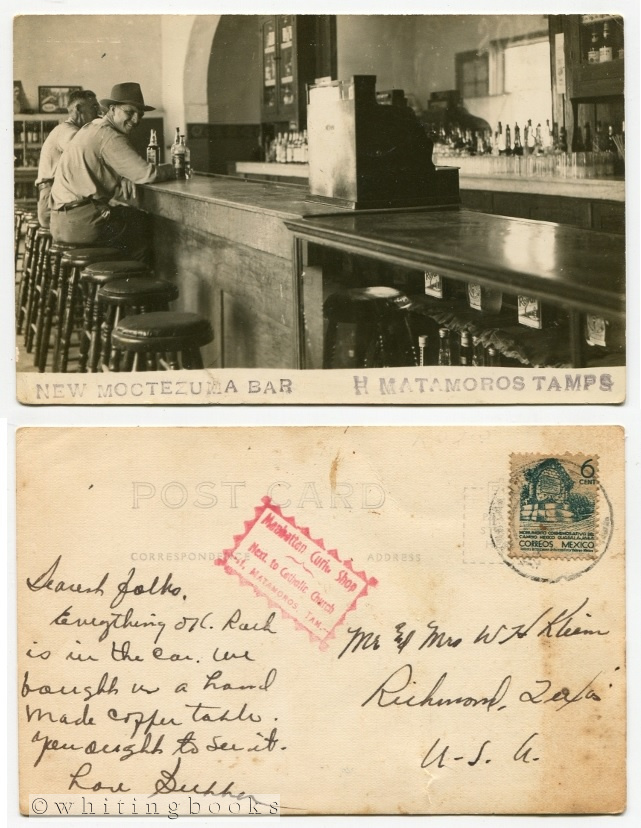 NEW MOCTEZUMA BAR H MATAMOROS TAMPS
POST CARD
CORRESPONDENCE ADDRESS
6
CENT
CORREOS MEXICO
Manhattan Curio Shop
Next to Catholic Church
H. MATAMOROS, TAM.
Dearest folks,
Everything O.K. Rack
is in the car. We
bought us a hand
made copper table.
You ought to see it.
Love
Mr & Mrs W H Kleim
Richmond, Texas
U-S. A.
© whitingbooks